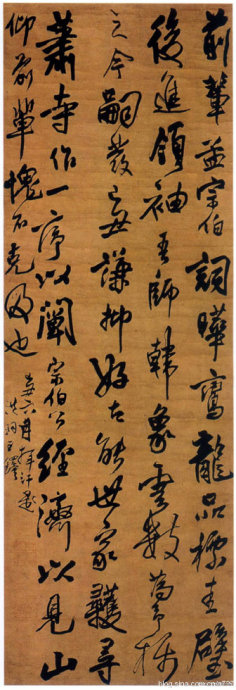 前輩益宗伯詞曄鸞龍品標圭璧
後進領袖吾師韓象雲數為予稱
之今嗣發之世謙抑好古能世家護尋
蕭寺作一序以闡宗伯公經濟以見山
仰前輩愧不克多也
blog.sina.com.cn